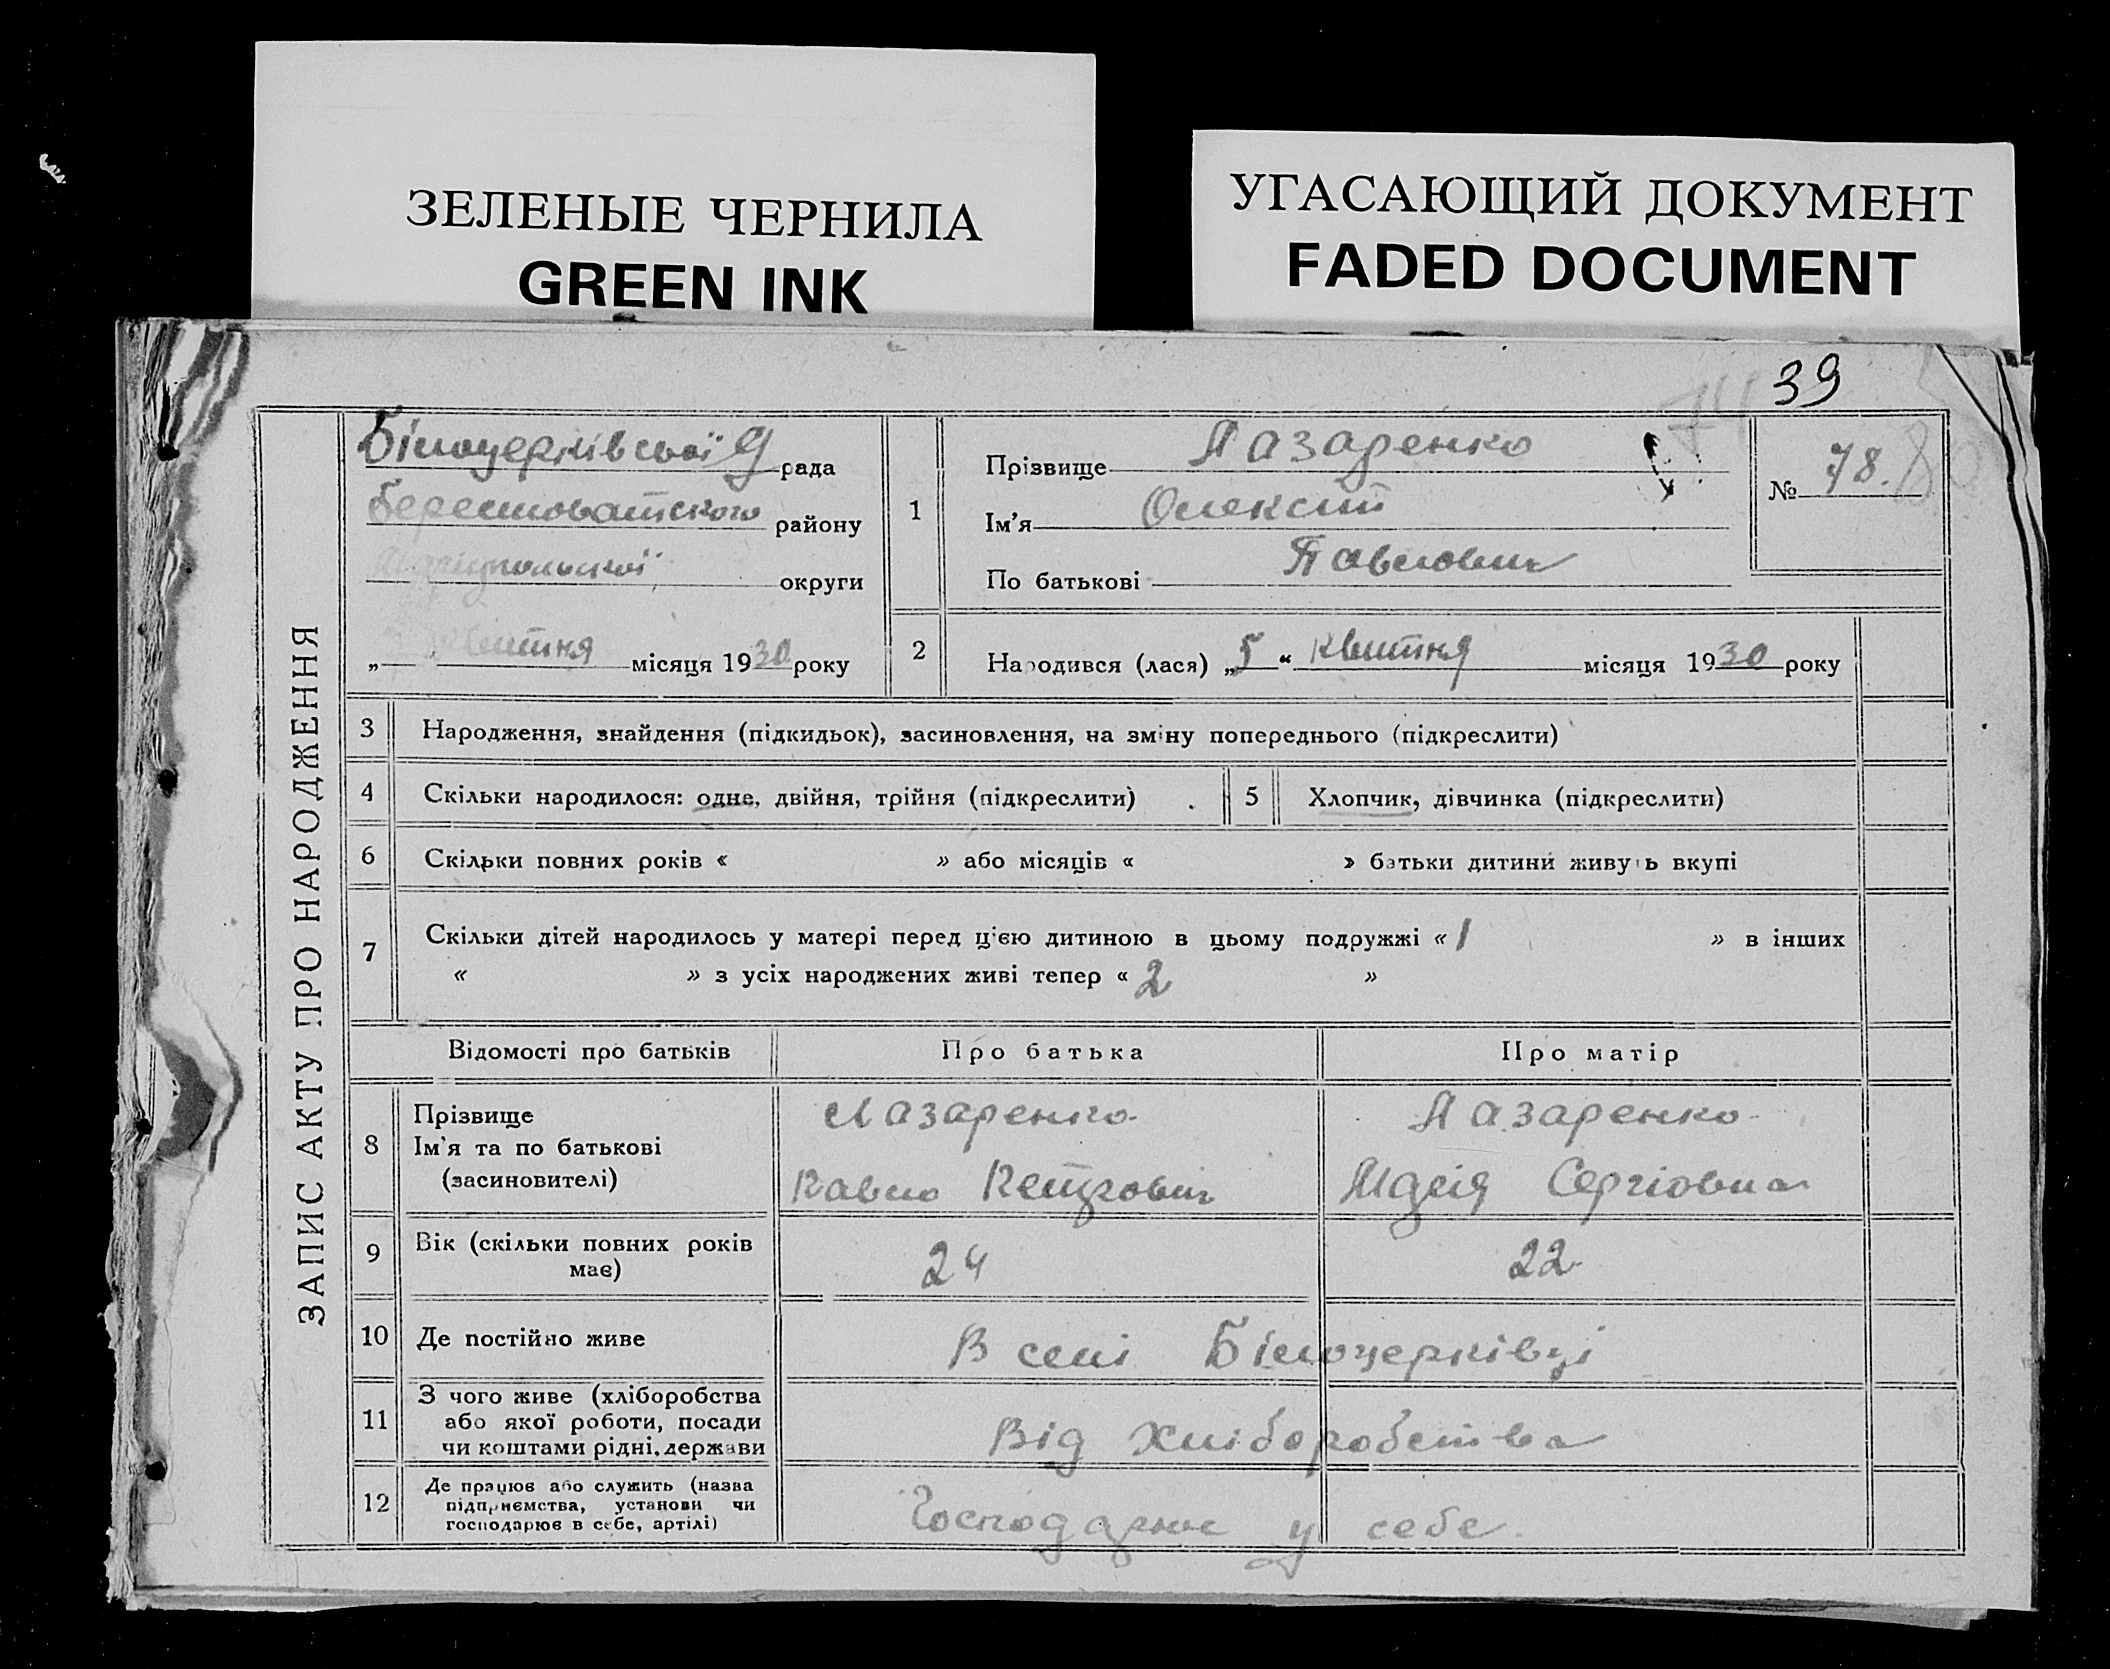 ЗЕЛЕНЫЕ ЧЕРНИЛА
GREEN INK
УГАСАЮЩИЙ ДОКУМЕНТ
FADED DOCUMENT
39
ЗАПИС АКТУ ПРО НАРОДЖЕННЯ
Білоцерківської рада
берестоватского району
округи
„ квітня місяця 1930 року
1
Прізвище Лазаренко
Ім’я Олексій
По батькові Павлович
№ 78.
2
Народився (лася) „5“ квітня місяця 1930 року
3 Народження, знайдення (підкидьок), засиновлення, на зміну попереднього (підкреслити)
4 Скільки народилося: одне, двійня, трійня (підкреслити)
5 Хлопчик, дівчинка (підкреслити)
6 Скільки повних років « » або місяців « » батьки дитини живуть вкупі
7 Скільки дітей народилось у матері перед цією дитиною в цьому подружжі « 1 » в інших
« » з усіх народжених живі тепер « 2 »
Відомості про батьків Про батька Про матір
8 Прізвище
Ім’я та по батькові
(засиновителі)
Лазаренко
Павло Петрович
Лазаренко
Сергіовна
9 Вік (скільки повних років
має)
24 22
10 Де постійно живе В селі Білоцерківці
11 З чого живе (хліборобства
або якої роботи, посади
чи коштами рідні, держави
Від хліборобства
12 Де працює або служить (назва
підприємства, установи чи
господарює в себе, артілі)
Господарює у себе.